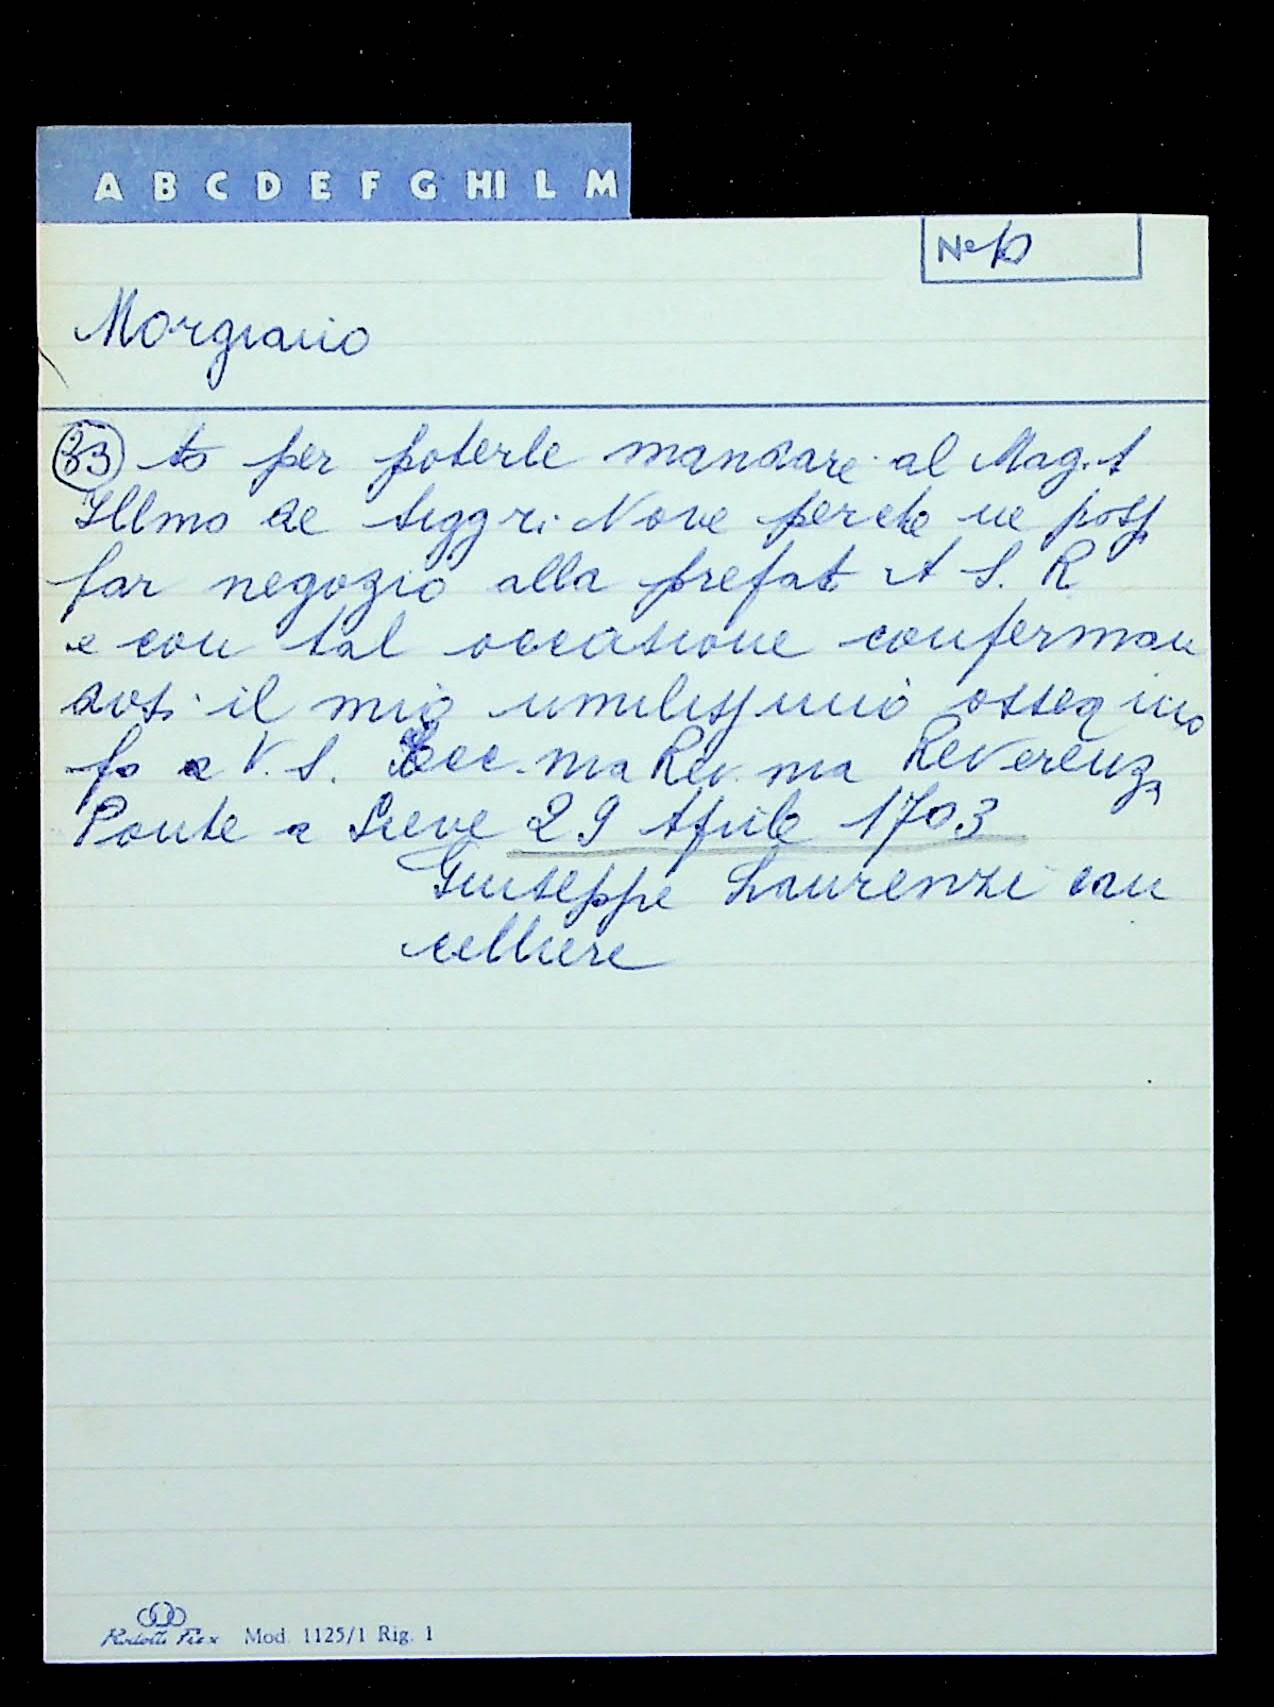 A B C D E F G HI L M
No 10
Morgiano
83 to per poterle mandare al Mag.t
Illmo de Siggri. Nove perche ne poss
far negozio alla prefat A S. R
e con tal occasione conferman
dosi il mio umilissimo ossequio
fo a V. S. Ecc.ma Rev.ma Reverenza
Ponte a Sieve 29 Aprile 1703
Giuseppe Laurenzi can
celliere
Mod. 1125/1 Rig. 1